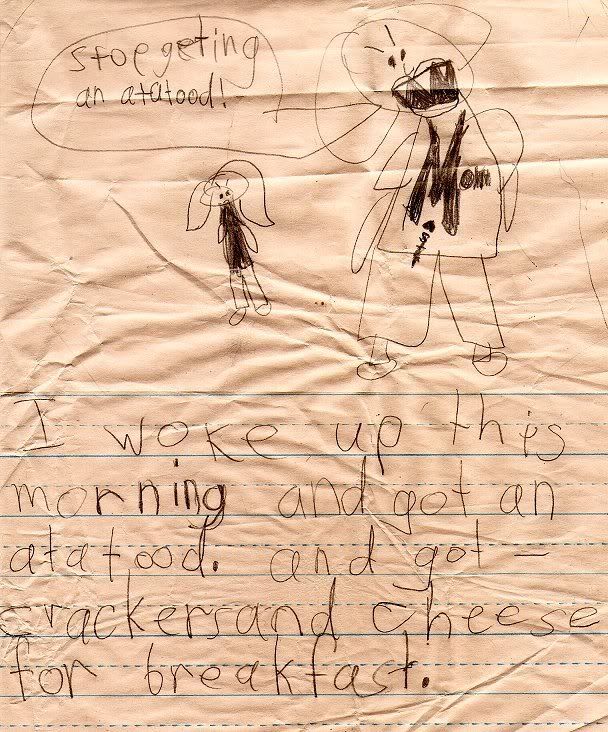 Stope geting
an atatood!
Mom
I woke up this
morning and got an
atatood. and got -
crackersand cheese
for breakfast.